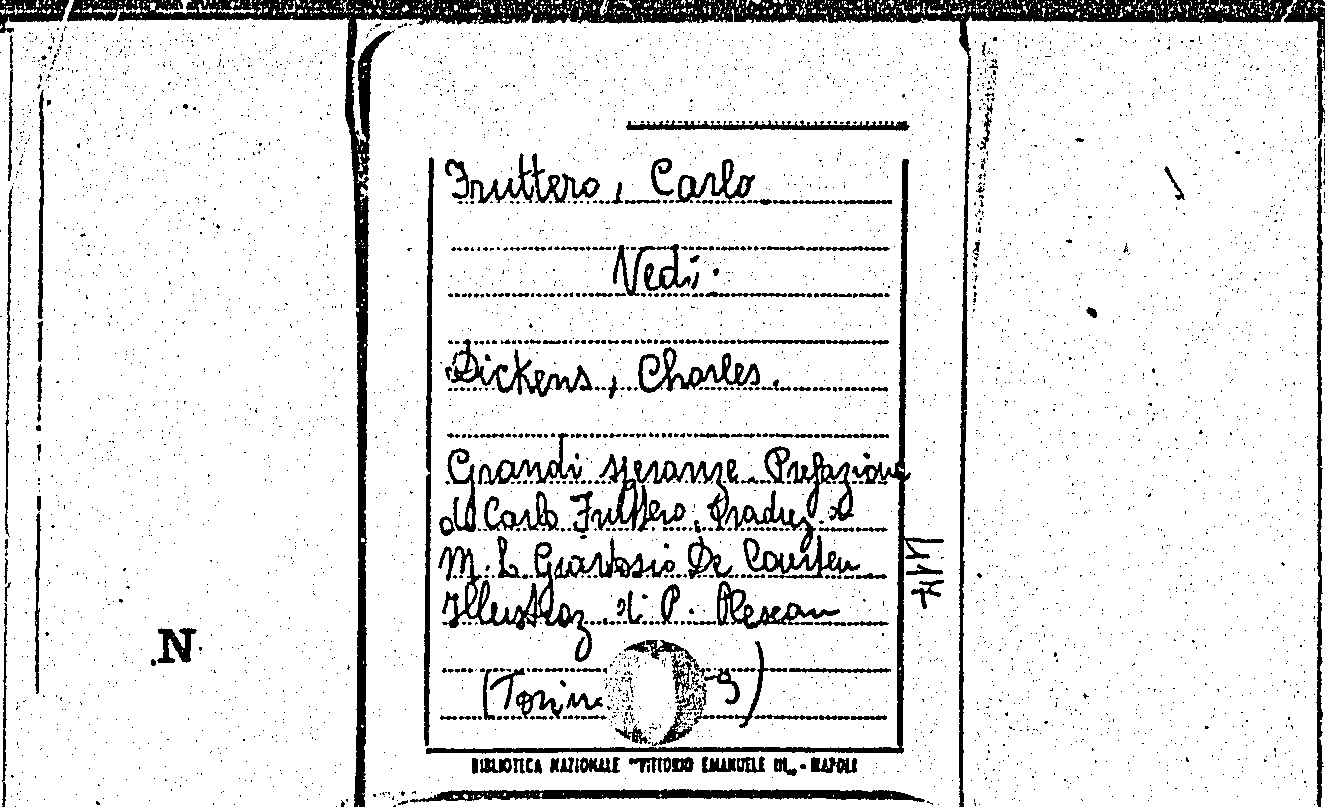 Fruttero, Carlo
Vedi:
Dickens, Charles.
Grandi speranze. Prefazione
di Carlo Fruttero. Traduz. di
M. L. Giartosio De Courten
Illustraz. di P. Plescan
(Torino 9)
BIBLIOTECA NAZIONALE "VITTORIO EMANUELE III„ - NAPOLI
N